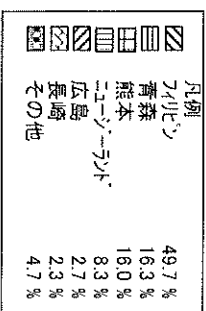 凡例
フィリピン 49.7 %
青森 16.3 %
熊本 16.0 %
ニュージーランド 8.3 %
広島 2.7 %
長崎 2.3 %
その他 4.7 %